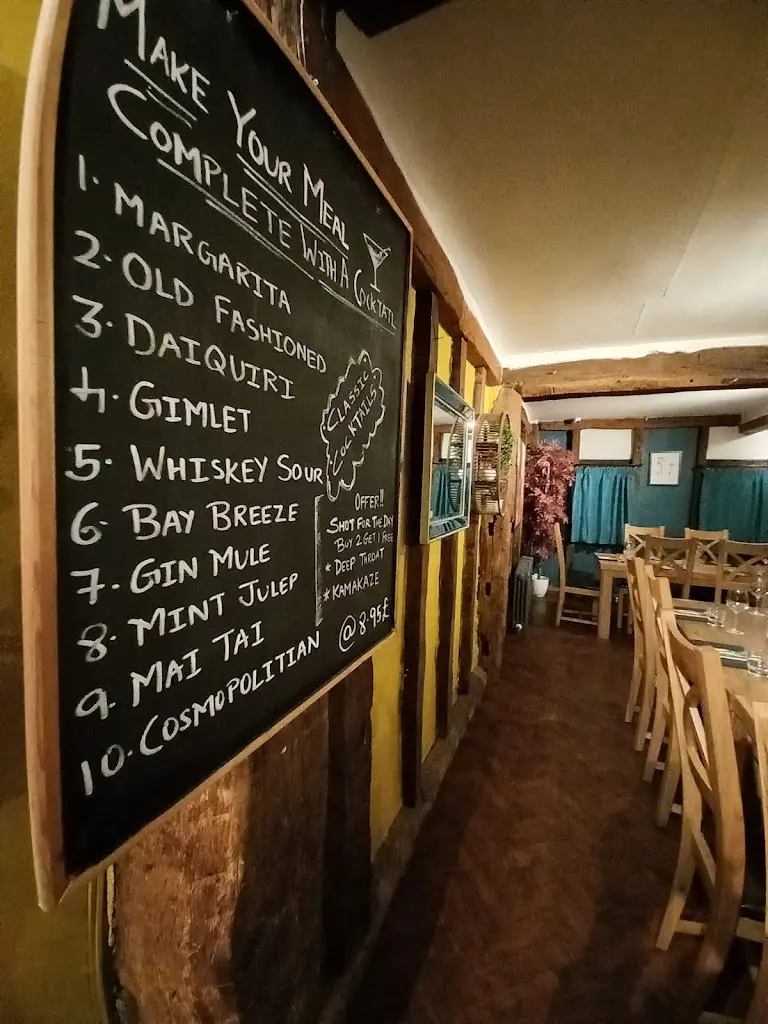 MAKE YOUR MEAL
COMPLETE WITH A COCKTAIL
1. MARGARITA
2. OLD FASHIONED
3. DAIQUIRI
4. GIMLET
5. WHISKEY SOUR
6. BAY BREEZE
7. GIN MULE
8. MINT JULEP
9. MAI TAI
10. COSMOPOLITIAN
CLASSIC
COCKTAILS
OFFER!!
SHOT FOR THE DAY
BUY 2 GET 1 FREE
* DEEP THROAT
* KAMAKAZE
@ 8.95£